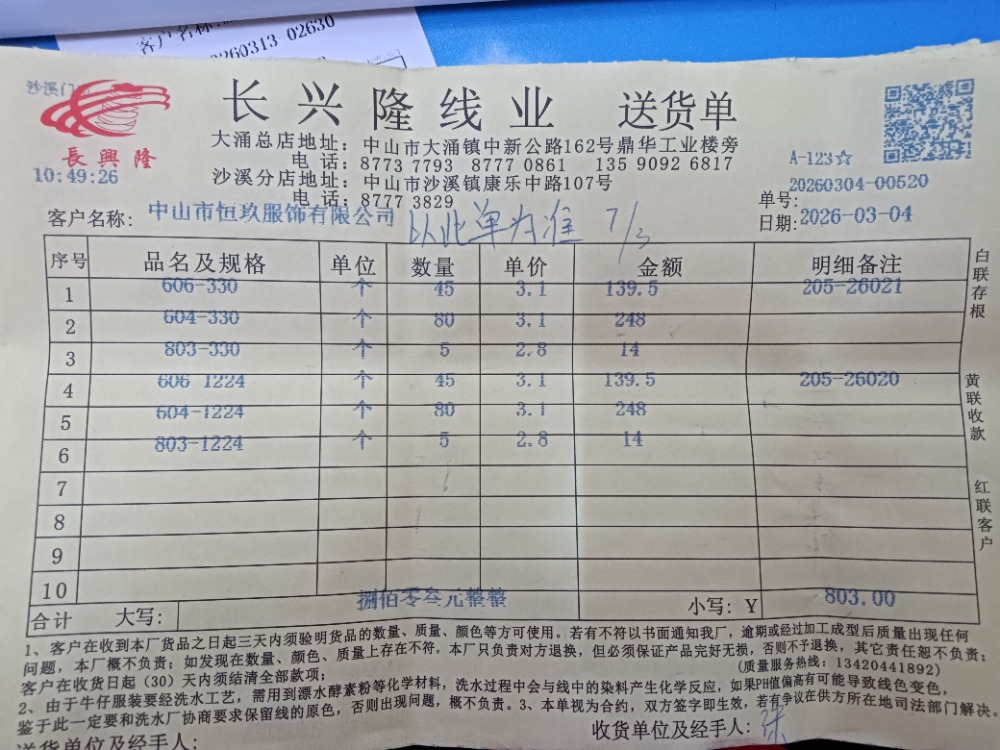 客户名称:
0260313 02630
沙溪门
長興隆
长兴隆线业 送货单
大涌总店地址: 中山市大涌镇中新公路162号鼎华工业楼旁
电话: 8773 7793 8777 0861 135 9092 6817
沙溪分店地址: 中山市沙溪镇康乐中路107号
电话: 8777 3829
10:49:26
A-123☆
单号: 20260304-00520
客户名称: 中山市恒玖服饰有限公司
以此单为准 7/3
日期: 2026-03-04
序号 品名及规格 单位 数量 单价 金额 明细备注
1 606-330 个 45 3.1 139.5 205-26021
2 604-330 个 80 3.1 248
3 803-330 个 5 2.8 14
4 606 1224 个 45 3.1 139.5 205-26020
5 604-1224 个 80 3.1 248
6 803-1224 个 5 2.8 14
7
8
9
10
合计 大写: 捌佰零叁元整整 小写: Y 803.00
白联存根
黄联收款
红联客户
1、客户在收到本厂货品之日起三天内须验明货品的数量、质量、颜色等方可使用。若有不符以书面通知我厂,逾期或经过加工成型后质量出现任何
问题,本厂概不负责;如发现在数量、颜色、质量上存在不符,本厂只负责对方退换,但必须保证产品完好无损,否则不予退换,其它责任恕不负责;
客户在收货日起(30)天内须结清全部款项; (质量服务热线: 13420441892)
2、由于牛仔服装要经洗水工艺,需用到漂水酵素粉等化学材料,洗水过程中会与线中的染料产生化学反应,如果PH值偏高有可能导致线色变色,
鉴于此一定要和洗水厂协商要求保留线的原色,否则出现问题,概不负责。3、本单视为合约,双方签字即生效,若有争议在供方所在地司法部门解决。
送货单位及经手人: 收货单位及经手人: